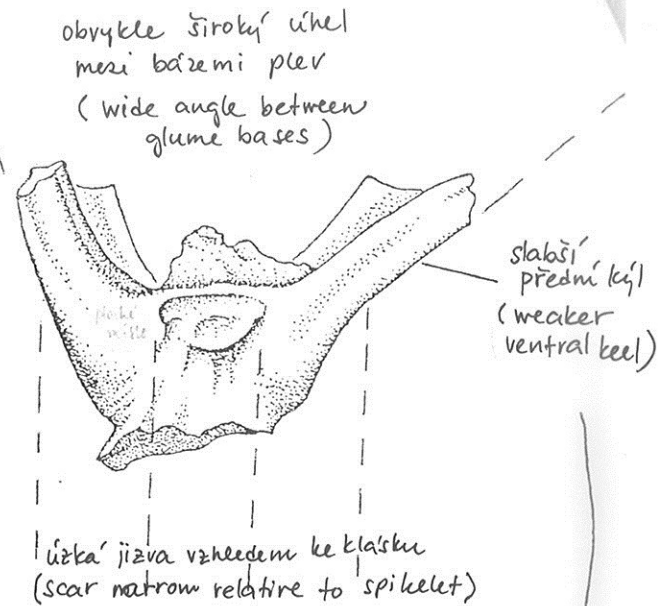 obvykle široký úhel
mezi bázemi plev
(wide angle between
glume bases)
slabší
přední kýl
(weaker
ventral keel)
úzká jizva vzhledem ke klásku
(scar natrow relative to spikelet)